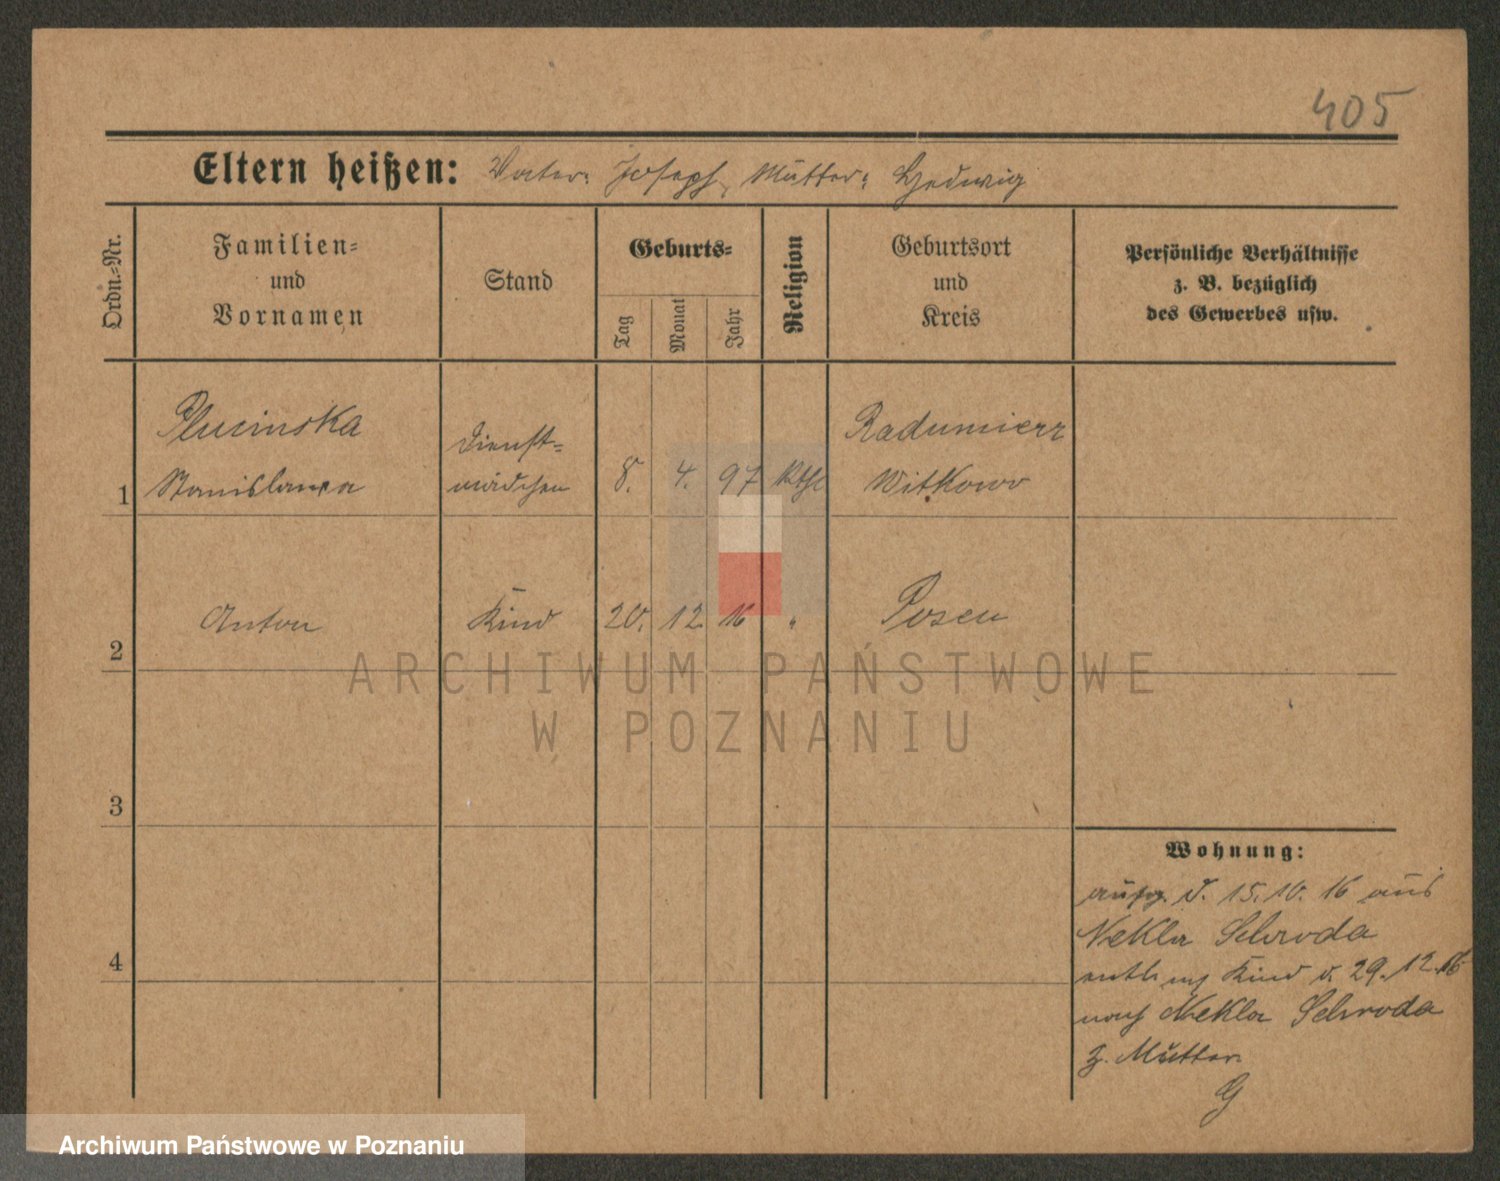 405
Eltern heißen: Vater: Joseph, Mutter: Hedwig
Ordn.-Nr.
Familien-
und
Vornamen
Stand
Geburts-
Tag
Monat
Jahr
Religion
Geburtsort
und
Kreis
Persönliche Verhältnisse
z. B. bezüglich
des Gewerbes usw.
Plucinska
Dienst-
Radumierz
1 Stanislawa mädchen 8. 4. 97 Kth Witkowo
Anton Kind 20. 12 16 " Posen
2
ARCHIWUM PAŃSTWOWE
W POZNANIU
3
Wohnung:
aufg. d. 15.10. 16 aus
Nekla Schroda
4
entl. mit Kind d. 29.12.16
nach Nekla Schroda
z. Mutter
G
Archiwum Państwowe w Poznaniu